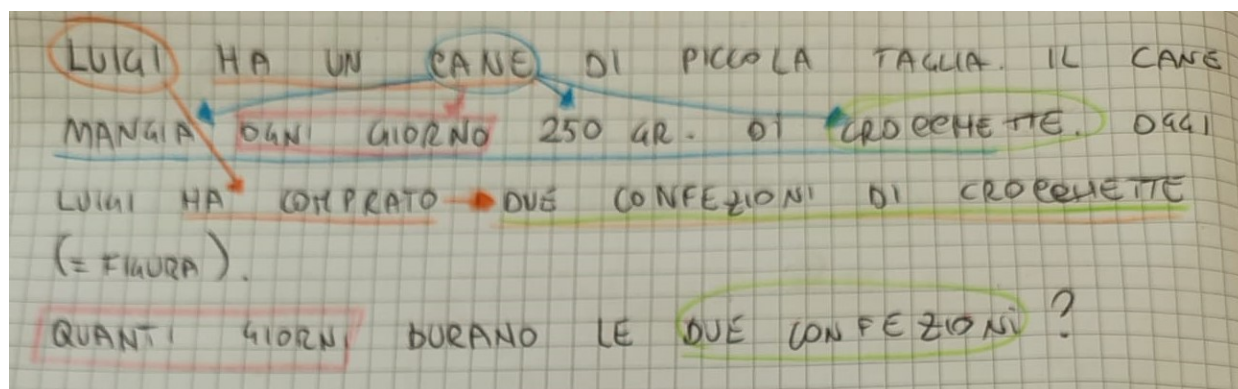 LUIGI HA UN CANE DI PICCOLA TAGLIA. IL CANE
MANGIA OGNI GIORNO 250 GR. DI CROCCHETTE. OGGI
LUIGI HA COMPRATO DUE CONFEZIONI DI CROCCHETTE
(= FIGURA).
QUANTI GIORNI DURANO LE DUE CONFEZIONI?